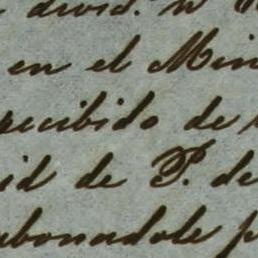 divid.
en el Min
recibido de
id de P. de
abonandole p